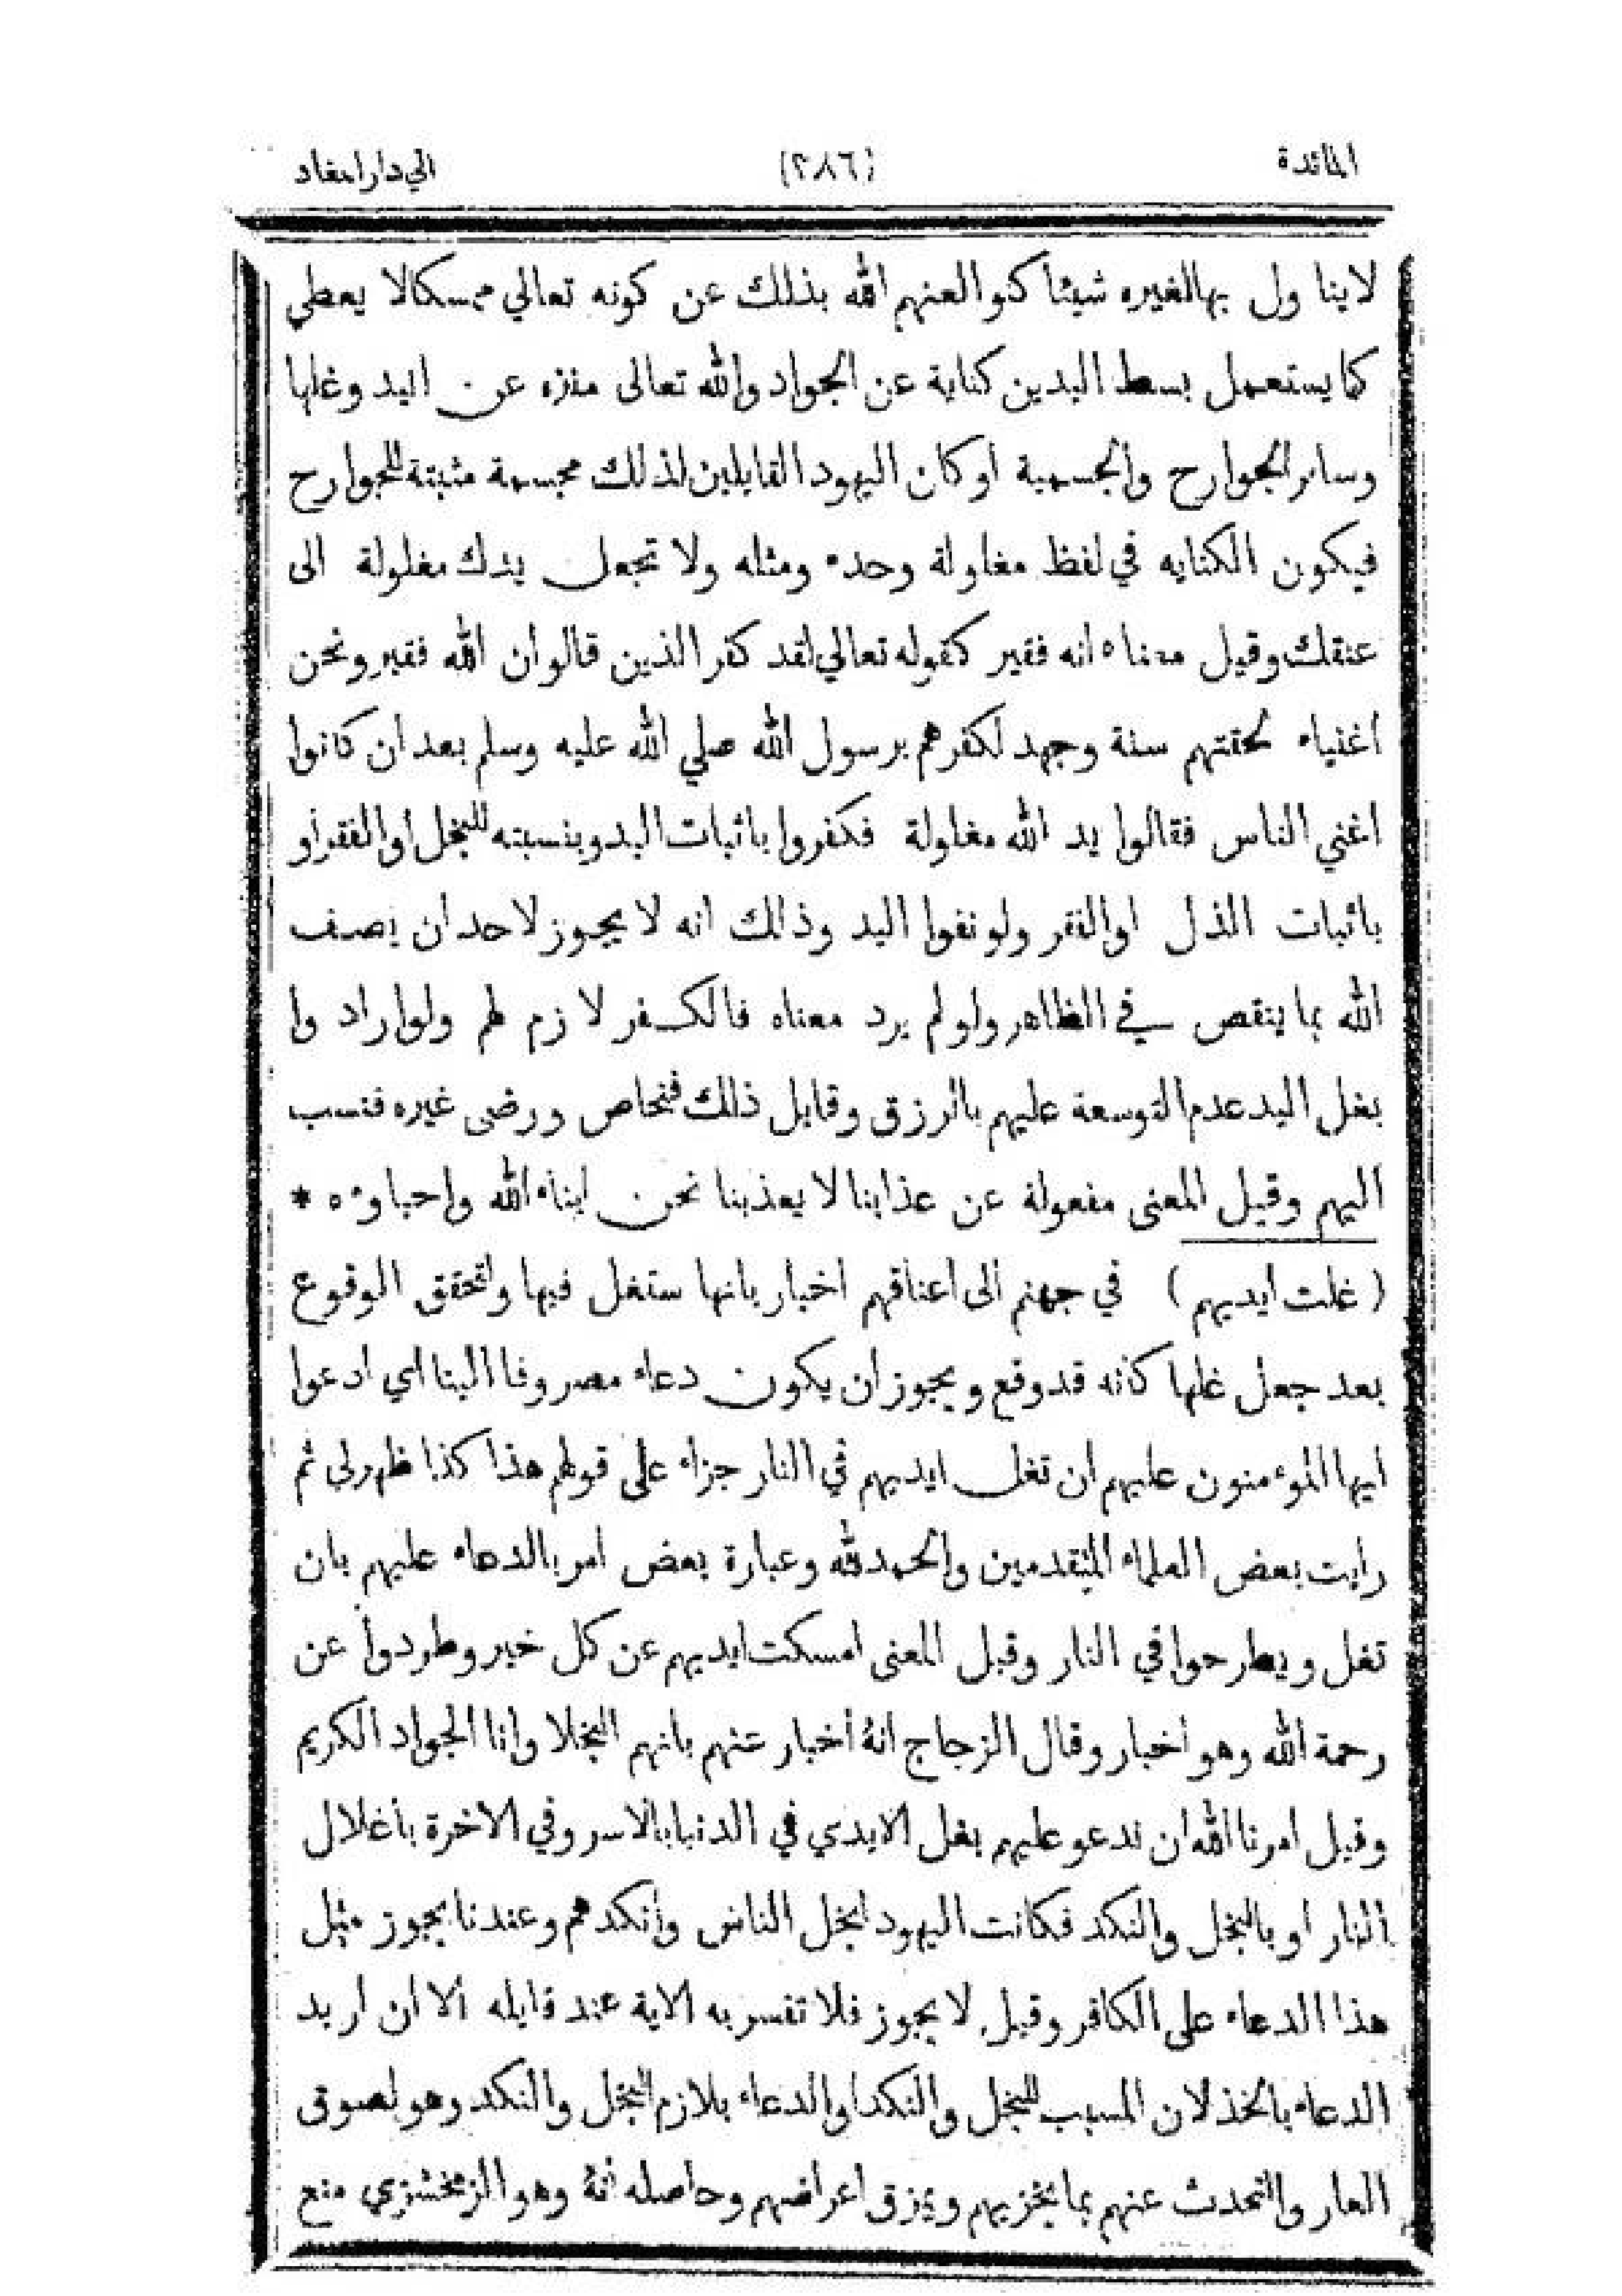 المائدة (٢٨٦) الي دار المعاد
لاينا ول بهالغيره شيئا كنوا لعنهم الله بذلك عن كونه تعالي ممسكالا يعطي
كما يستعمل بسط اليدين كناية عن الجواد والله تعالى منزه عن اليد وغلها
وسائر الجوارح والجسمية اوكان اليهود القايلين لذلك مجسمة مثبتة للجوارح
فيكون الكنايه في لفظ مغلولة وحده ومثله ولا تجعل يدك مغلولة الى
عنقك وقيل معناه انه فقير كقوله تعالي لقد كفر الذين قالوا ان الله فقير ونحن
اغنياء لحقتهم سنة وجهد لكفرهم برسول الله صلي الله عليه وسلم بعد ان كانوا
اغني الناس فقالوا يد الله مغلولة فكفروا باثبات اليد وبنسبته للبخل او الفقر او
باثبات الذل او الفقر ولو نفوا اليد وذالك انه لا يجوز لاحد ان يصف
الله بما ينقص في الظاهر ولو لم يرد معناه فالكفر لا زم لهم ولو اراد وا
بغل اليد عدم التوسعة عليهم بالرزق وقايل ذالك فنحاص ورضى غيره فنسب
اليهم وقيل المعنى مغلولة عن عذابنا لا يعذبنا نحن ابناء الله واحباوءه *
(غلت ايديهم) في جهنم الى اعناقهم اخبار بانها ستغل فيها ولتحقق الوقوع
بعد جعل غلها كأنه قد وقع ويجوز ان يكون دعاء مصروفا الينا اي ادعوا
ايها الموءمنون عليهم ان تغل ايديهم في النار جزاء على قولهم هذا كذا ظهرلى ثم
رايت بعض العلماء المتقدمين والحمد لله وعبارة بعض امر بالدعاء عليهم بان
تغل ويطرحوا في النار وقيل المعنى امسكت ايديهم عن كل خير وطردوا عن
رحمة الله وهو اخبار وقال الزجاج انه أخبار عنهم بانهم البخلا وانا الجواد الكريم
وقيل امرنا الله ان ندعو عليهم بغل الايدي في الدنيا بالاسر وفي الاخرة بأغلال
النار او بالبخل والنكد فكانت اليهود ابخل الناس وأنكدهم وعندنا يجوز مثل
هذا الدعاء على الكافر وقيل لا يجوز فلا تفسر به الاية عند قايله الا ان اريد
الدعاء بالخذلان المسبب للبخل والنكد او الدعاء بلازم البخل والنكد وهو لصوق
العار والتحدث عنهم بما يخزيهم ويمزق اعراضهم وحاصله انه وهو الزمخشري منع